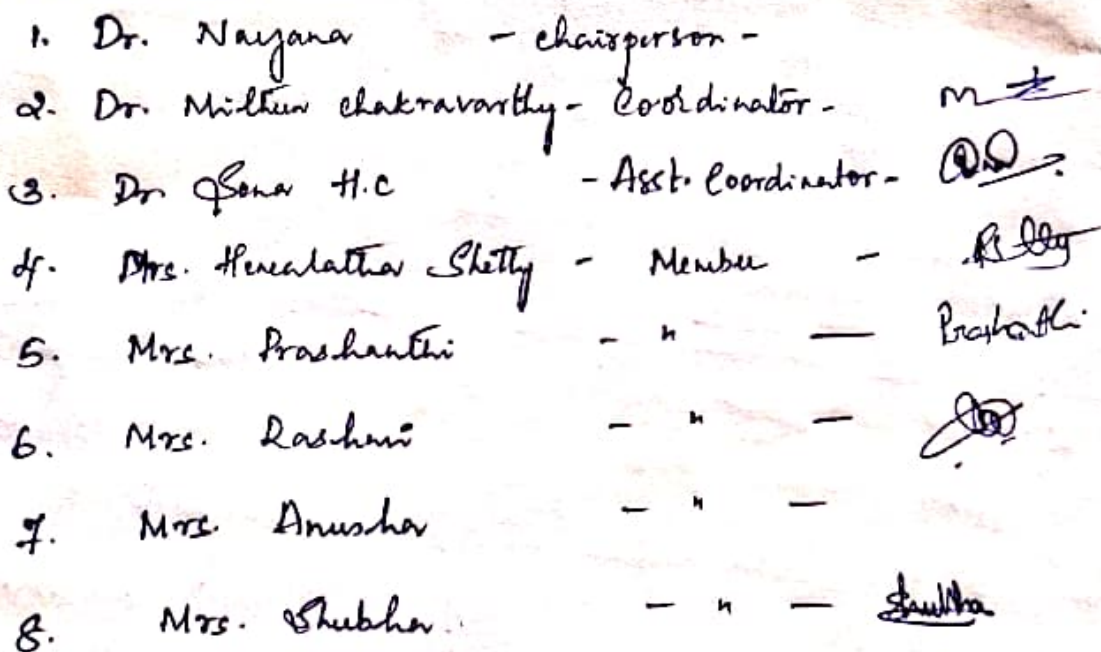 1. Dr. Nayana - chairperson -
2. Dr. Mithun chakravarthy - Coordinator -
3. Dr Sona H.C - Asst. Coordinator -
4. Mrs. Hemalatha Shetty - Member -
5. Mrs. Prashanthi - " - Prashanthi
6. Mrs. Rashmi - " -
7. Mrs. Anusha - " -
8. Mrs. Shubha. - " - Shubha